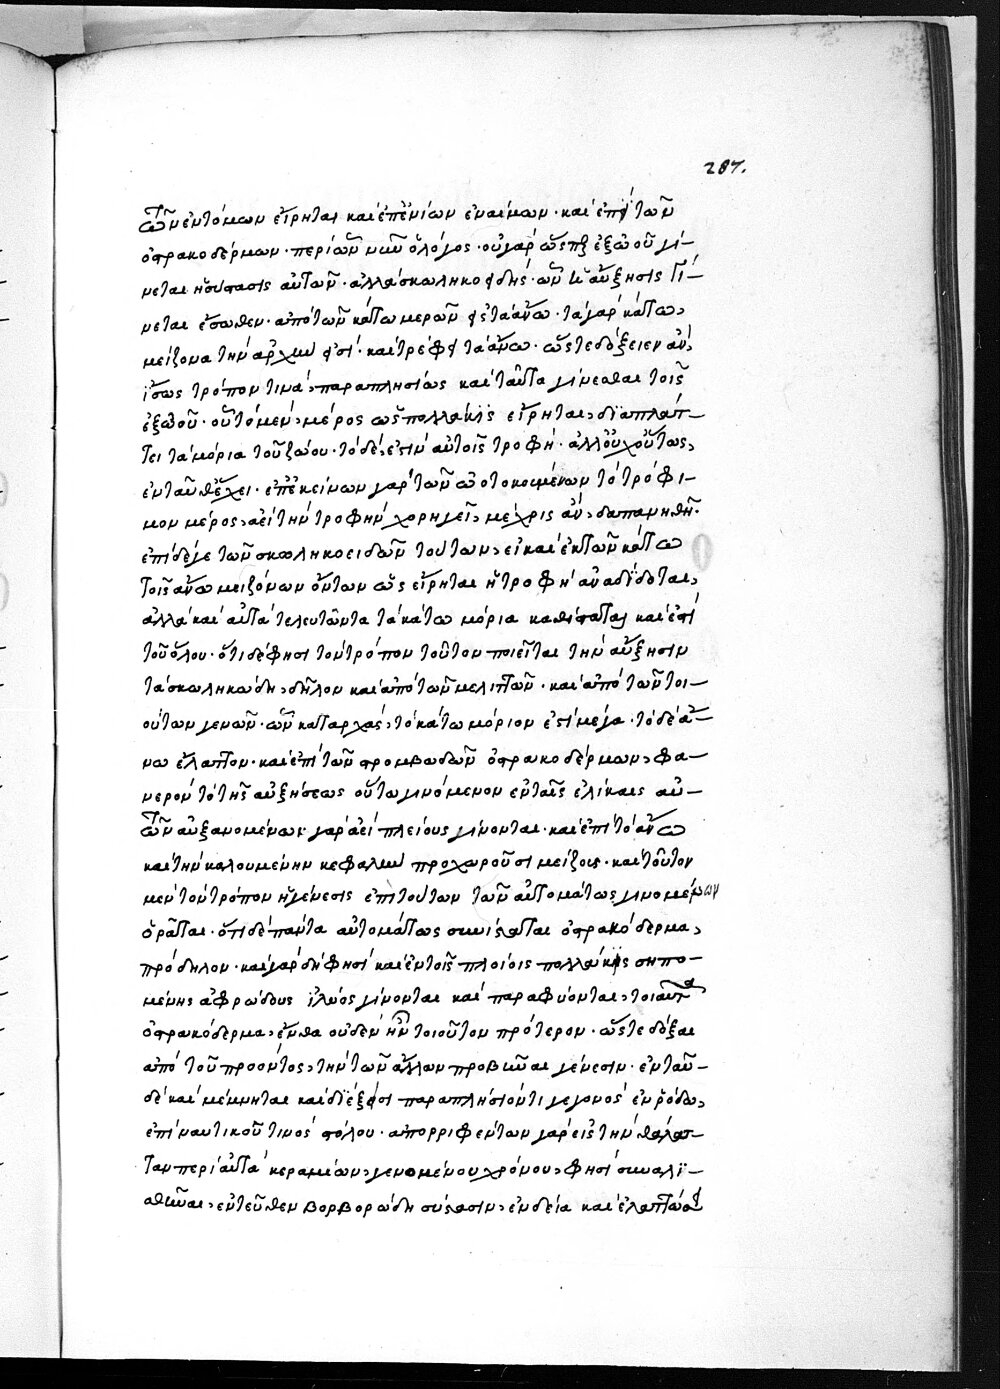 287.
τῶν ἐντόμων εἴρηται καὶ ἐπ' ἐνίων ἐναίμων· καὶ ἐπὶ τῶν
ὀστρακοδέρμων· περὶ ὧν νῦν ὁ λόγος· οὐ γὰρ ὥσπερ ἐξ ὠοῦ γί-
νεται ἡ σύστασις αὐτῶν· ἀλλὰ σκωληκοειδής· ὧν ἡ αὔξησις γί-
νεται ἔσωθεν· ἀπὸ τῶν κάτω μερῶν εἰς τὰ ἄνω· τὰ γὰρ κάτω,
μείζονα τὴν ἀρχὴν εἰσί· καὶ τρέφει τὰ ἄνω· ὥστε δόξειεν ἂν,
ἴσως τρόπον τινὰ, παραπλησίως καὶ ταῦτα γίνεσθαι τοῖς
ἐξ ὠοῦ· οὗ τὸ μὲν, μέρος ὡς πολλάκις εἴρηται, διαπλάτ-
τει τὰ μόρια τοῦ ζώου· τὸ δὲ, ἐστὶν αὐτοῖς τροφή· ἀλλ' οὐχ οὕτως,
ἐνταῦθ' ἔχει· ἐπ' ἐκείνων γὰρ τῶν ὠοτοκουμένων τὸ τρόφι-
μον μέρος, ἀεὶ τὴν τροφὴν χορηγεῖ, μέχρις ἂν, δαπανηθῇ·
ἐπὶ δέ γε τῶν σκωληκοειδῶν τούτων, εἰ καὶ ἐκ τῶν κάτω
τοῖς ἄνω μειζόνων ὄντων ὡς εἴρηται ἡ τροφὴ ἀναδίδοται,
ἀλλὰ καὶ αὐτὰ τελευτῶντα τὰ κάτω μόρια καθίσταται καὶ ἐπὶ
τοῦ ὅλου· ὅτι δέ φησι τὸν τρόπον τοῦτον ποιεῖται τὴν αὔξησιν
τὰ σκωληκώδη, δῆλον καὶ ἀπὸ τῶν μελιττῶν· καὶ ἀπὸ τῶν τοι-
ούτων γενῶν· ὧν κατ' ἀρχὰς, τὸ κάτω μόριον ἐστὶ μέγα· τὸ δὲ ἄ-
νω ἔλαττον· καὶ ἐπὶ τῶν στρομβωδῶν ὀστρακοδέρμων, φα-
νερὸν τὸ τῆς αὐξήσεως οὕτω γινόμενον ἐν ταῖς ἕλιξιν· αὐ-
τῶν αὐξανομένων γὰρ ἀεὶ πλείους γίνονται· καὶ ἐπὶ τὸ ἄνω
καὶ τὴν καλουμένην κεφαλὴν προχωροῦσι μείζους· καὶ τοῦτον
μὲν τὸν τρόπον ἡ γένεσις ἐπὶ τούτων τῶν αὐτομάτως γινομένων
ὁρᾶται· ὅτι δὲ πάντα αὐτομάτως συνίσταται ὀστρακόδερμα,
πρόδηλον· καὶ γὰρ δή φησὶ καὶ ἐν τοῖς πλοίοις πολλάκις σηπο-
μένης ἀφρώδους ἰλύος γίνονται καὶ παραφύονται, τοιαῦτα
ὀστρακόδερμα, ἔνθα οὐδὲν ἦν τοιοῦτον πρότερον· ὥστε δόξαι
ἀπὸ τοῦ προόντος, τὴν τῶν ἄλλων προβῆναι γένεσιν· ἐνταῦ-
δὲ καὶ μέμνηται καὶ διέξεισι παραπλήσιόν τι γεγονὸς ἐν ῥόδῳ,
ἐπὶ ναυτικοῦ τινος στόλου· ἀπορριφέντων γὰρ εἰς τὴν θάλατ-
ταν περὶ αὐτὰ κεραμίων, γενομένου χρόνου, φησὶ συναλι-
σθῆναι, ἐντεῦθεν βορβορώδη σύστασιν, ἐνδεία καὶ